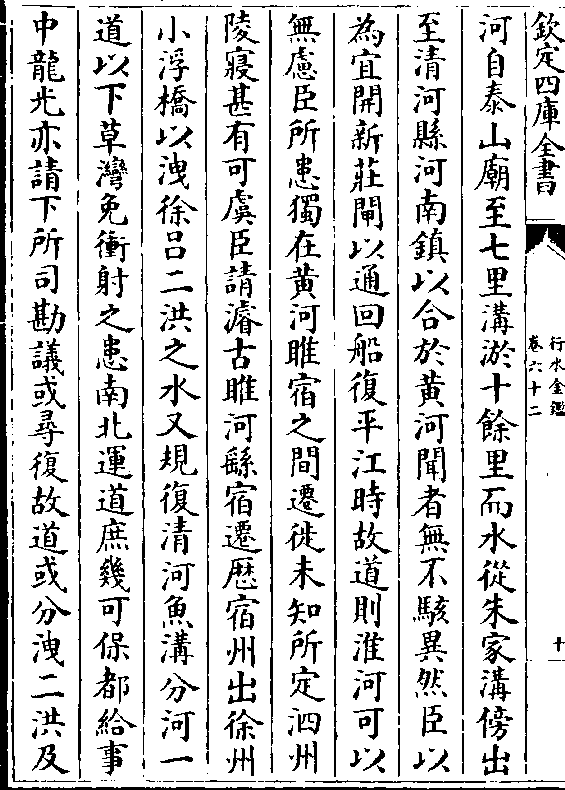 欽定四庫全書
行水金鑑
卷六十二
十
河自泰山廟至七里溝淤十餘里而水從朱家溝傍出
至清河縣河南鎮以合於黄河聞者無不駭異然臣以
為宜開新莊閘以通回船復平江時故道則淮河可以
無慮臣所患獨在黄河睢宿之間遷徙未知所定泗州
陵寢甚有可虞臣請濬古睢河繇宿遷歴宿州出徐州
小浮橋以洩徐吕二洪之水又規復清河魚溝分河一
道以下草灣免衝射之患南北運道庶幾可保都給事
中龍光亦請下所司勘議或尋復故道或分洩二洪及